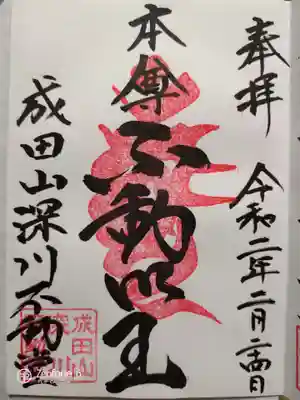 奉拝
令和二年二月二十四日
本尊
不動明王
成田山深川不動堂
成田山